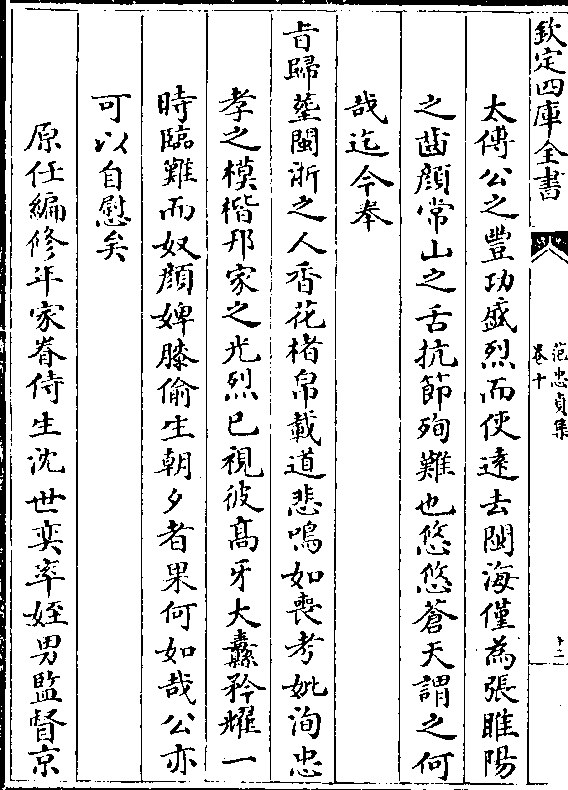 欽定四庫全書
范忠貞集
卷十
十二
太傅公之豐功盛烈而使遠去閩海僅為張睢陽
之齒顔常山之舌抗節殉難也悠悠蒼天謂之何
哉迄今奉
旨歸塟閩浙之人香花楮帛載道悲鳴如喪考妣洵忠
孝之模楷邦家之光烈已視彼髙牙大纛矜耀一
時臨難而奴顔婢膝偷生朝夕者果何如哉公亦
可以自慰矣
原任編修年家眷侍生沈世奕率姪男監督京